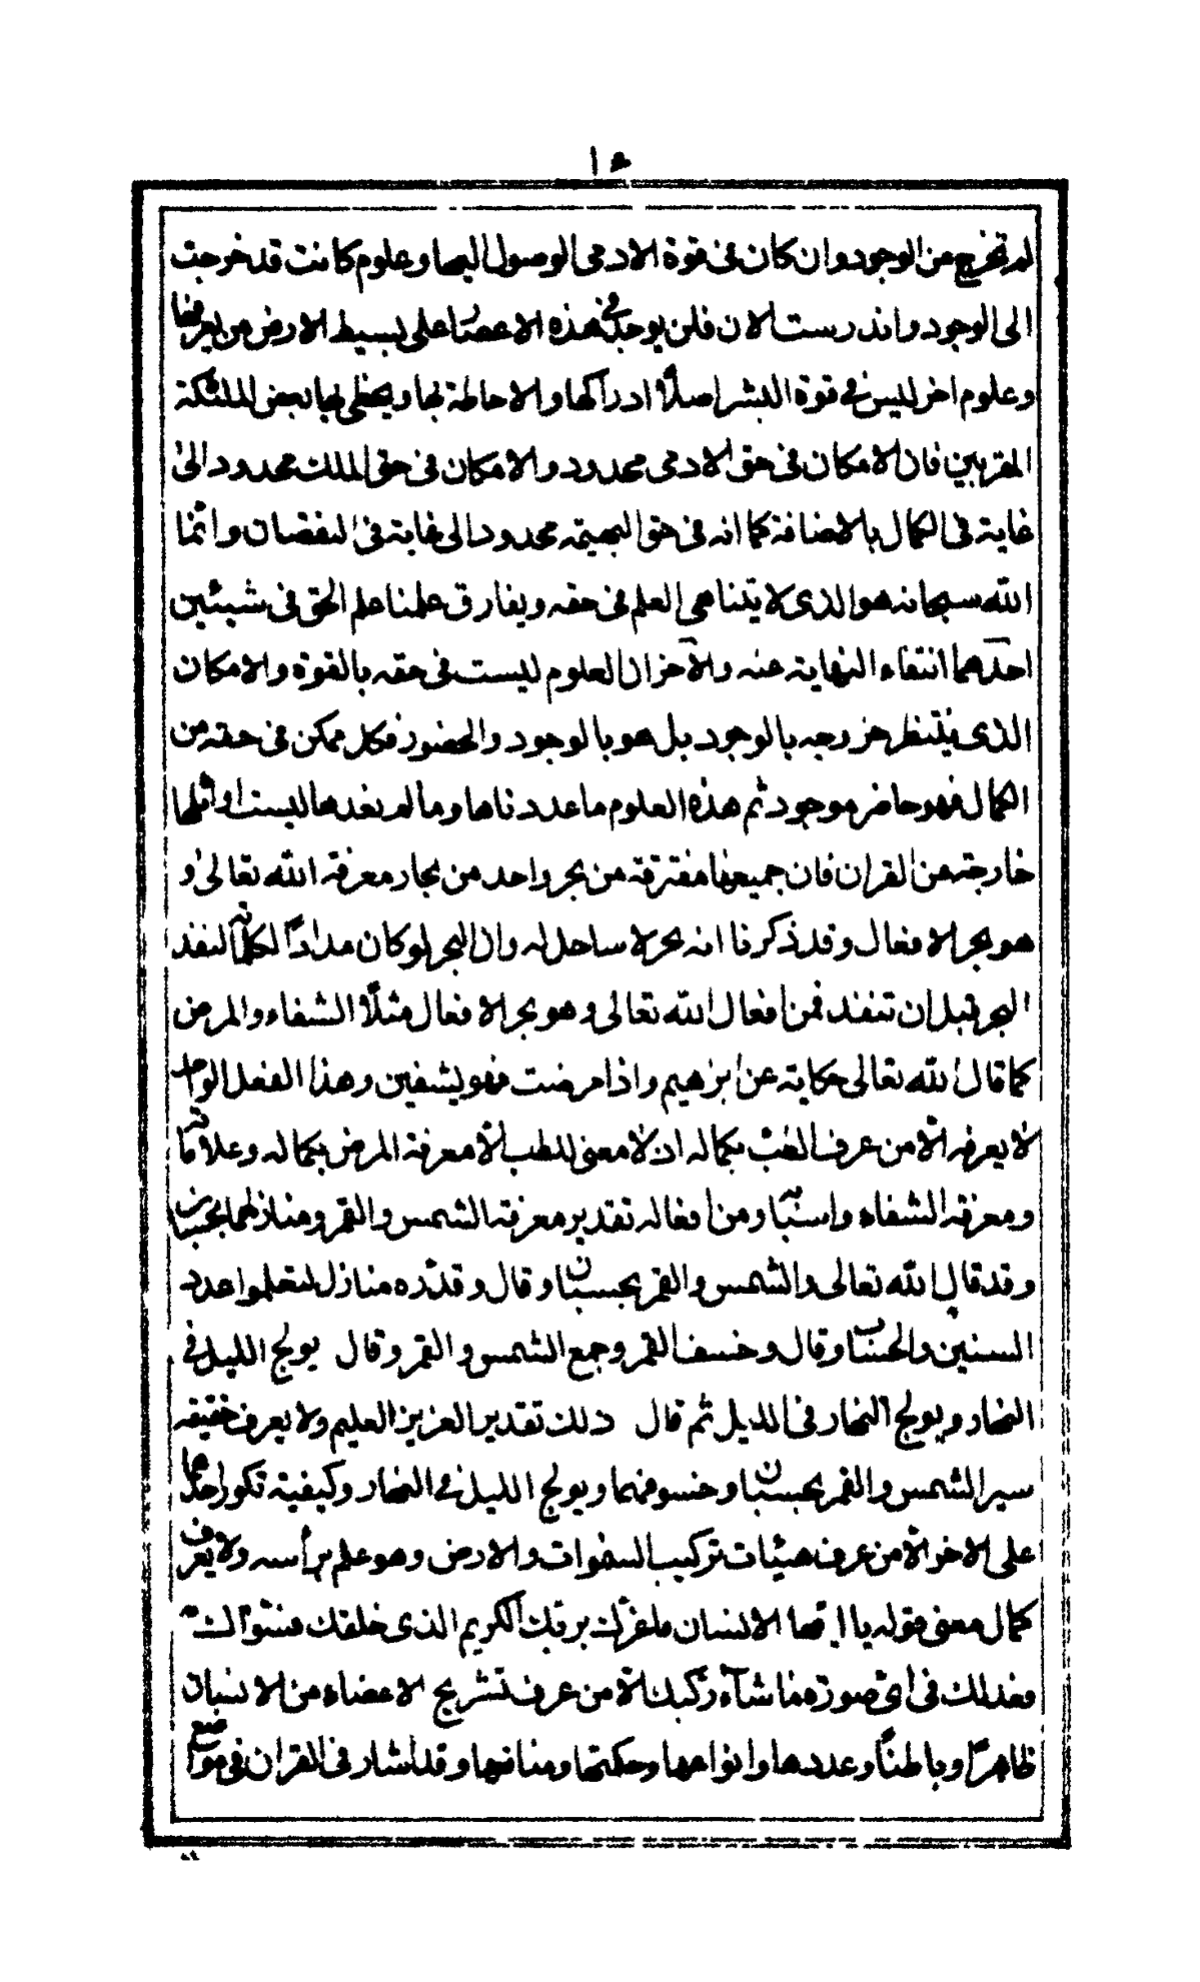 ١٥
لم تخرج من الوجود وان كان فى قوة الادمى الوصول اليها وعلوم كانت قد خرجت
الى الوجود واندرست الان فلن يوجد فى هذه الاعصار على بسيط الارض من يعرفها
وعلوم اخر ليس فى قوة البشر اصلًا ادراكها والاحاطة بها ويحظى بها بعض الملئكة
المقربين فان الامكان فى حق الادمى محدود والامكان فى حق الملك محدود الى
غاية فى الكمال بالاضافة كما انه فى حق البهيمة محدود الى غاية فى النقصان وانما
الله سبحانه هو الذى لا يتناهى العلم فى حقه ويفارق علمنا علم الحق فى شيئين
احدهما انتفاء النهاية عنه والآخر ان العلوم ليست فى حقه بالقوة والامكان
الذى ينتظر خروجه بالوجود بل هو بالوجود والحضور فكل ممكن فى حقه من
الكمال فهو حاضر موجود ثم هذه العلوم ما عددناها وما لم نعدها ليست اوائلها
خارجة من القران فان جميعها مفترقة من بحر واحد من بحار معرفة الله تعالى و
هو بحر الافعال وقد ذكرنا انه بحر لا ساحل له وان البحر لو كان مدادًا لكلماته لنفد
البحر قبل ان تنفد فمن افعال الله تعالى وهو بحر الافعال مثلًا الشفاء والمرض
كما قال الله تعالى حكاية عن ابرهيم واذا مرضت فهو يشفين وهذا الفعل الواحد
لا يعرفه الّا من عرف الطبّ بكماله اذ لا معنى للطب الّا معرفة المرض بكماله وعلاماته
ومعرفة الشفاء واسبابه ومن افعاله تقدير معرفة الشمس والقمر ومنازلهما بحسبان
وقد قال الله تعالى والشمس والقمر بحسبان وقال وقدّره منازل لتعلموا عدد
السنين والحساب وقال وخسف القمر وجمع الشمس والقمر وقال يولج الليل فى
النهار ويولج النهار فى الليل ثم قال ذلك تقدير العزيز العليم ولا يعرف حقيقة
سير الشمس والقمر بحسبان وخسوفهما ويولج الليل فى النهار وكيفية تكور احدهما
على الاخر الّا من عرف هيئات تركيب السموات والارض وهو علم برأسه ولا يعرف
كمال معنى قوله يا ايها الانسان ما غرّك بربك الكريم الذى خلقك فسوّاك
فعدلك فى اىّ صورة ما شآء ركبك الّا من عرف تشريح الاعضاء من الانسان
ظاهرًا وباطنًا وعددها وانواعها وحكمتها ومنافعها وقد اشار فى القران فى مواضع